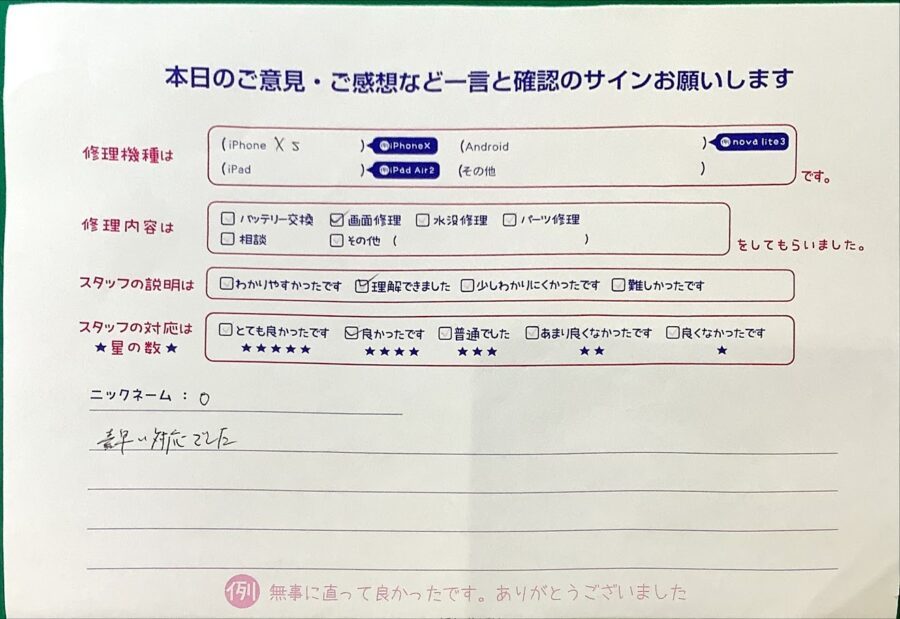 本日のご意見・ご感想など一言と確認のサインお願いします
修理機種は
(iPhone XS ) 例 iPhoneX (Android ) 例 nova lite3
(iPad ) 例 iPad Air2 (その他 ) です。
修理内容は
バッテリー交換 画面修理 水没修理 パーツ修理
相談 その他 ( ) をしてもらいました。
スタッフの説明は わかりやすかったです 理解できました 少しわかりにくかったです 難しかったです
スタッフの対応は とても良かったです 良かったです 普通でした あまり良くなかったです 良くなかったです
★星の数★ ★★★★★ ★★★★ ★★★ ★★ ★
ニックネーム : O
素早い対応でした
例 無事に直って良かったです。ありがとうございました